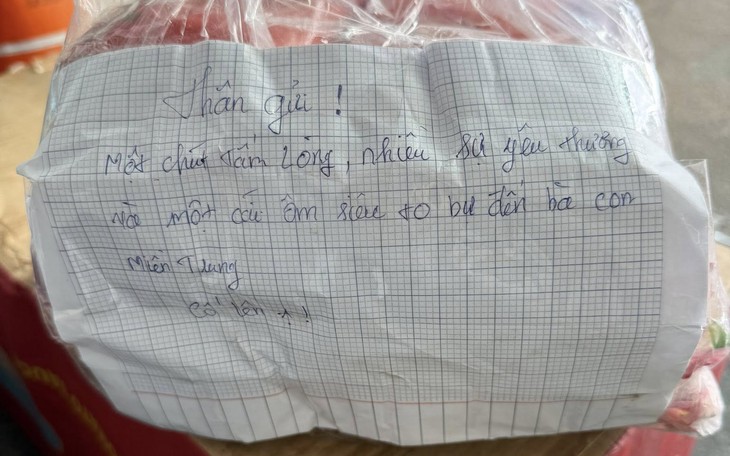 Thân gửi !
Một chút tấm lòng, nhiều sự yêu thương
và một cái ôm siêu to bự đến bà con
Miền Trung
Cố lên !